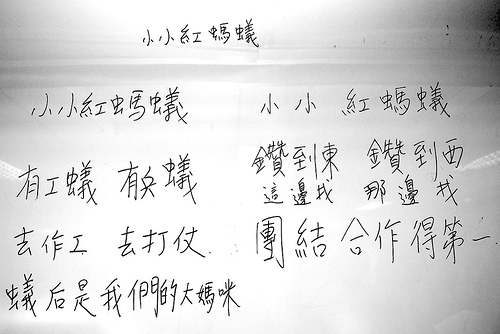 小小紅螞蟻
小小紅螞蟻
有工蟻 有兵蟻
去作工 去打仗
蟻后是我們的大媽咪
小小紅螞蟻
鑽到東 鑽到西
這邊找 那邊找
團結合作得第一